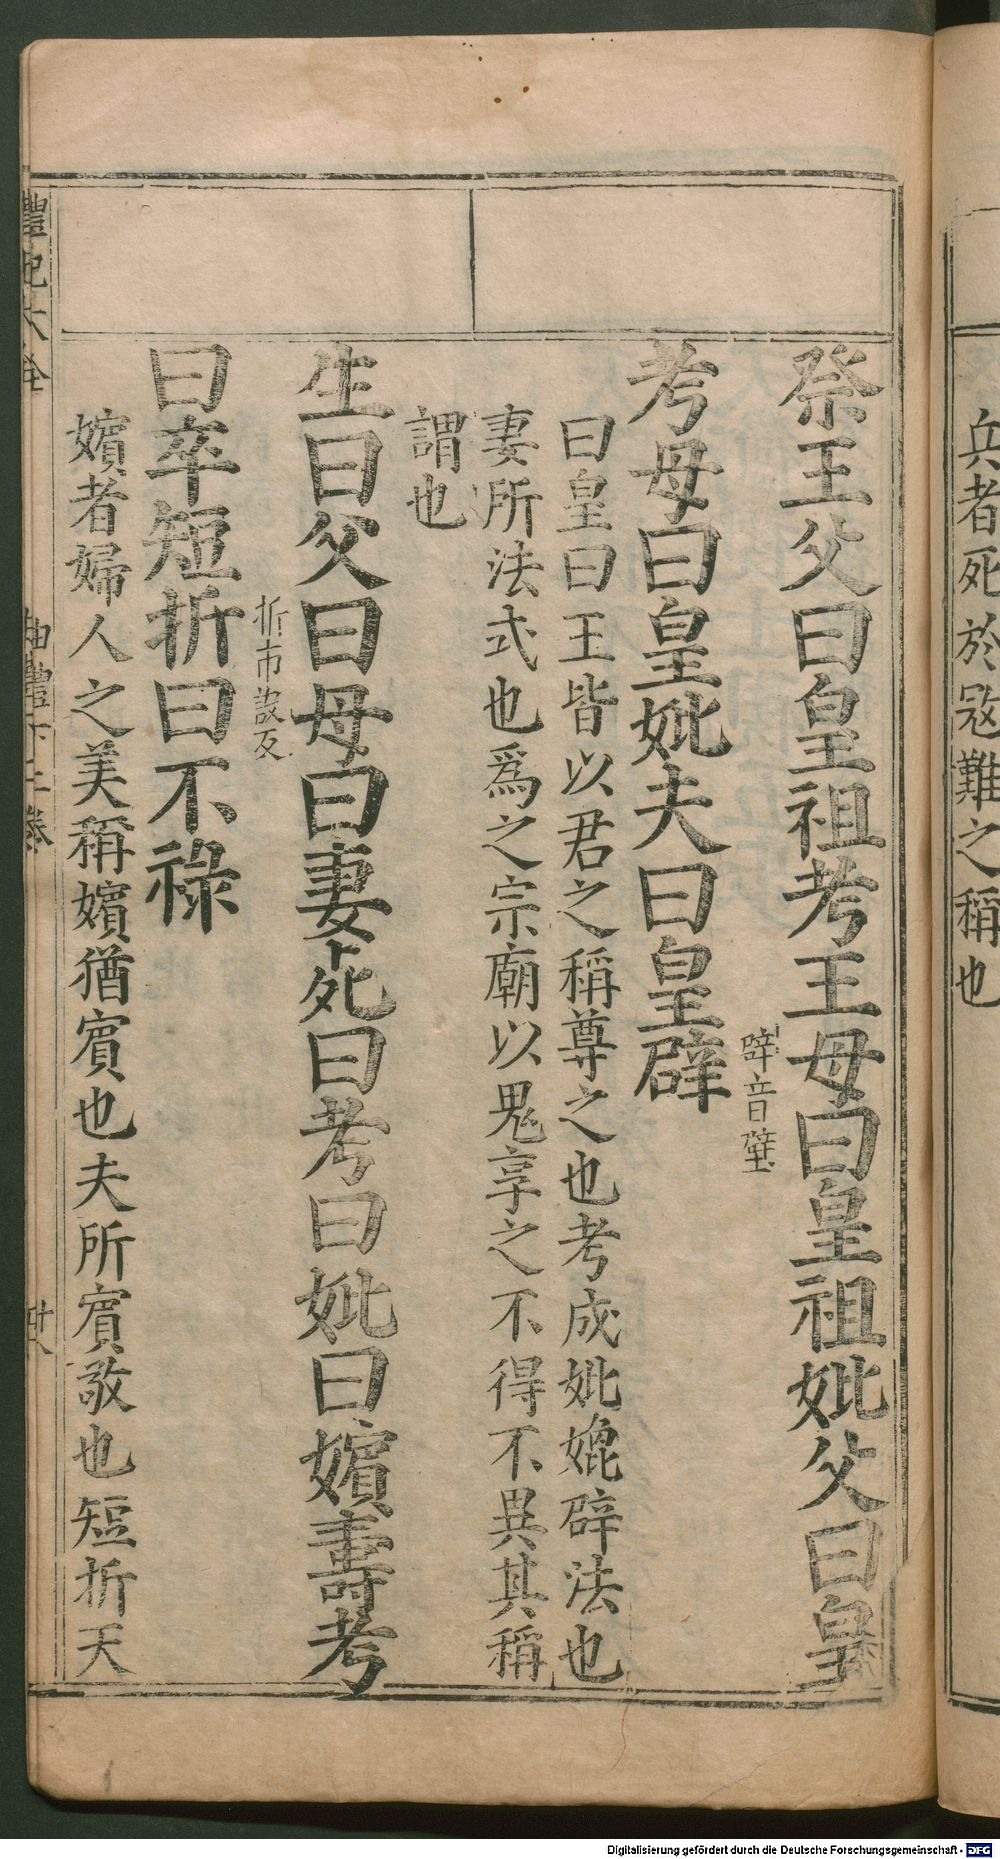 兵者死於寇難之稱也
祭王父曰皇祖考王母曰皇祖妣父曰皇
辟音璧
考母曰皇妣夫曰皇辟
曰皇曰王皆以君之稱尊之也考成妣媲辟法也
妻所法式也爲之宗廟以鬼享之不得不異其稱
謂也
生曰父曰母曰妻死曰考曰妣曰嬪壽考
折市設反
曰卒短折曰不祿
嬪者婦人之美稱嬪猶賓也夫所賓敬也短折夭
禮記大全
曲禮下二卷
廿八
Digitalisierung gefördert durch die Deutsche Forschungsgemeinschaft - DFG